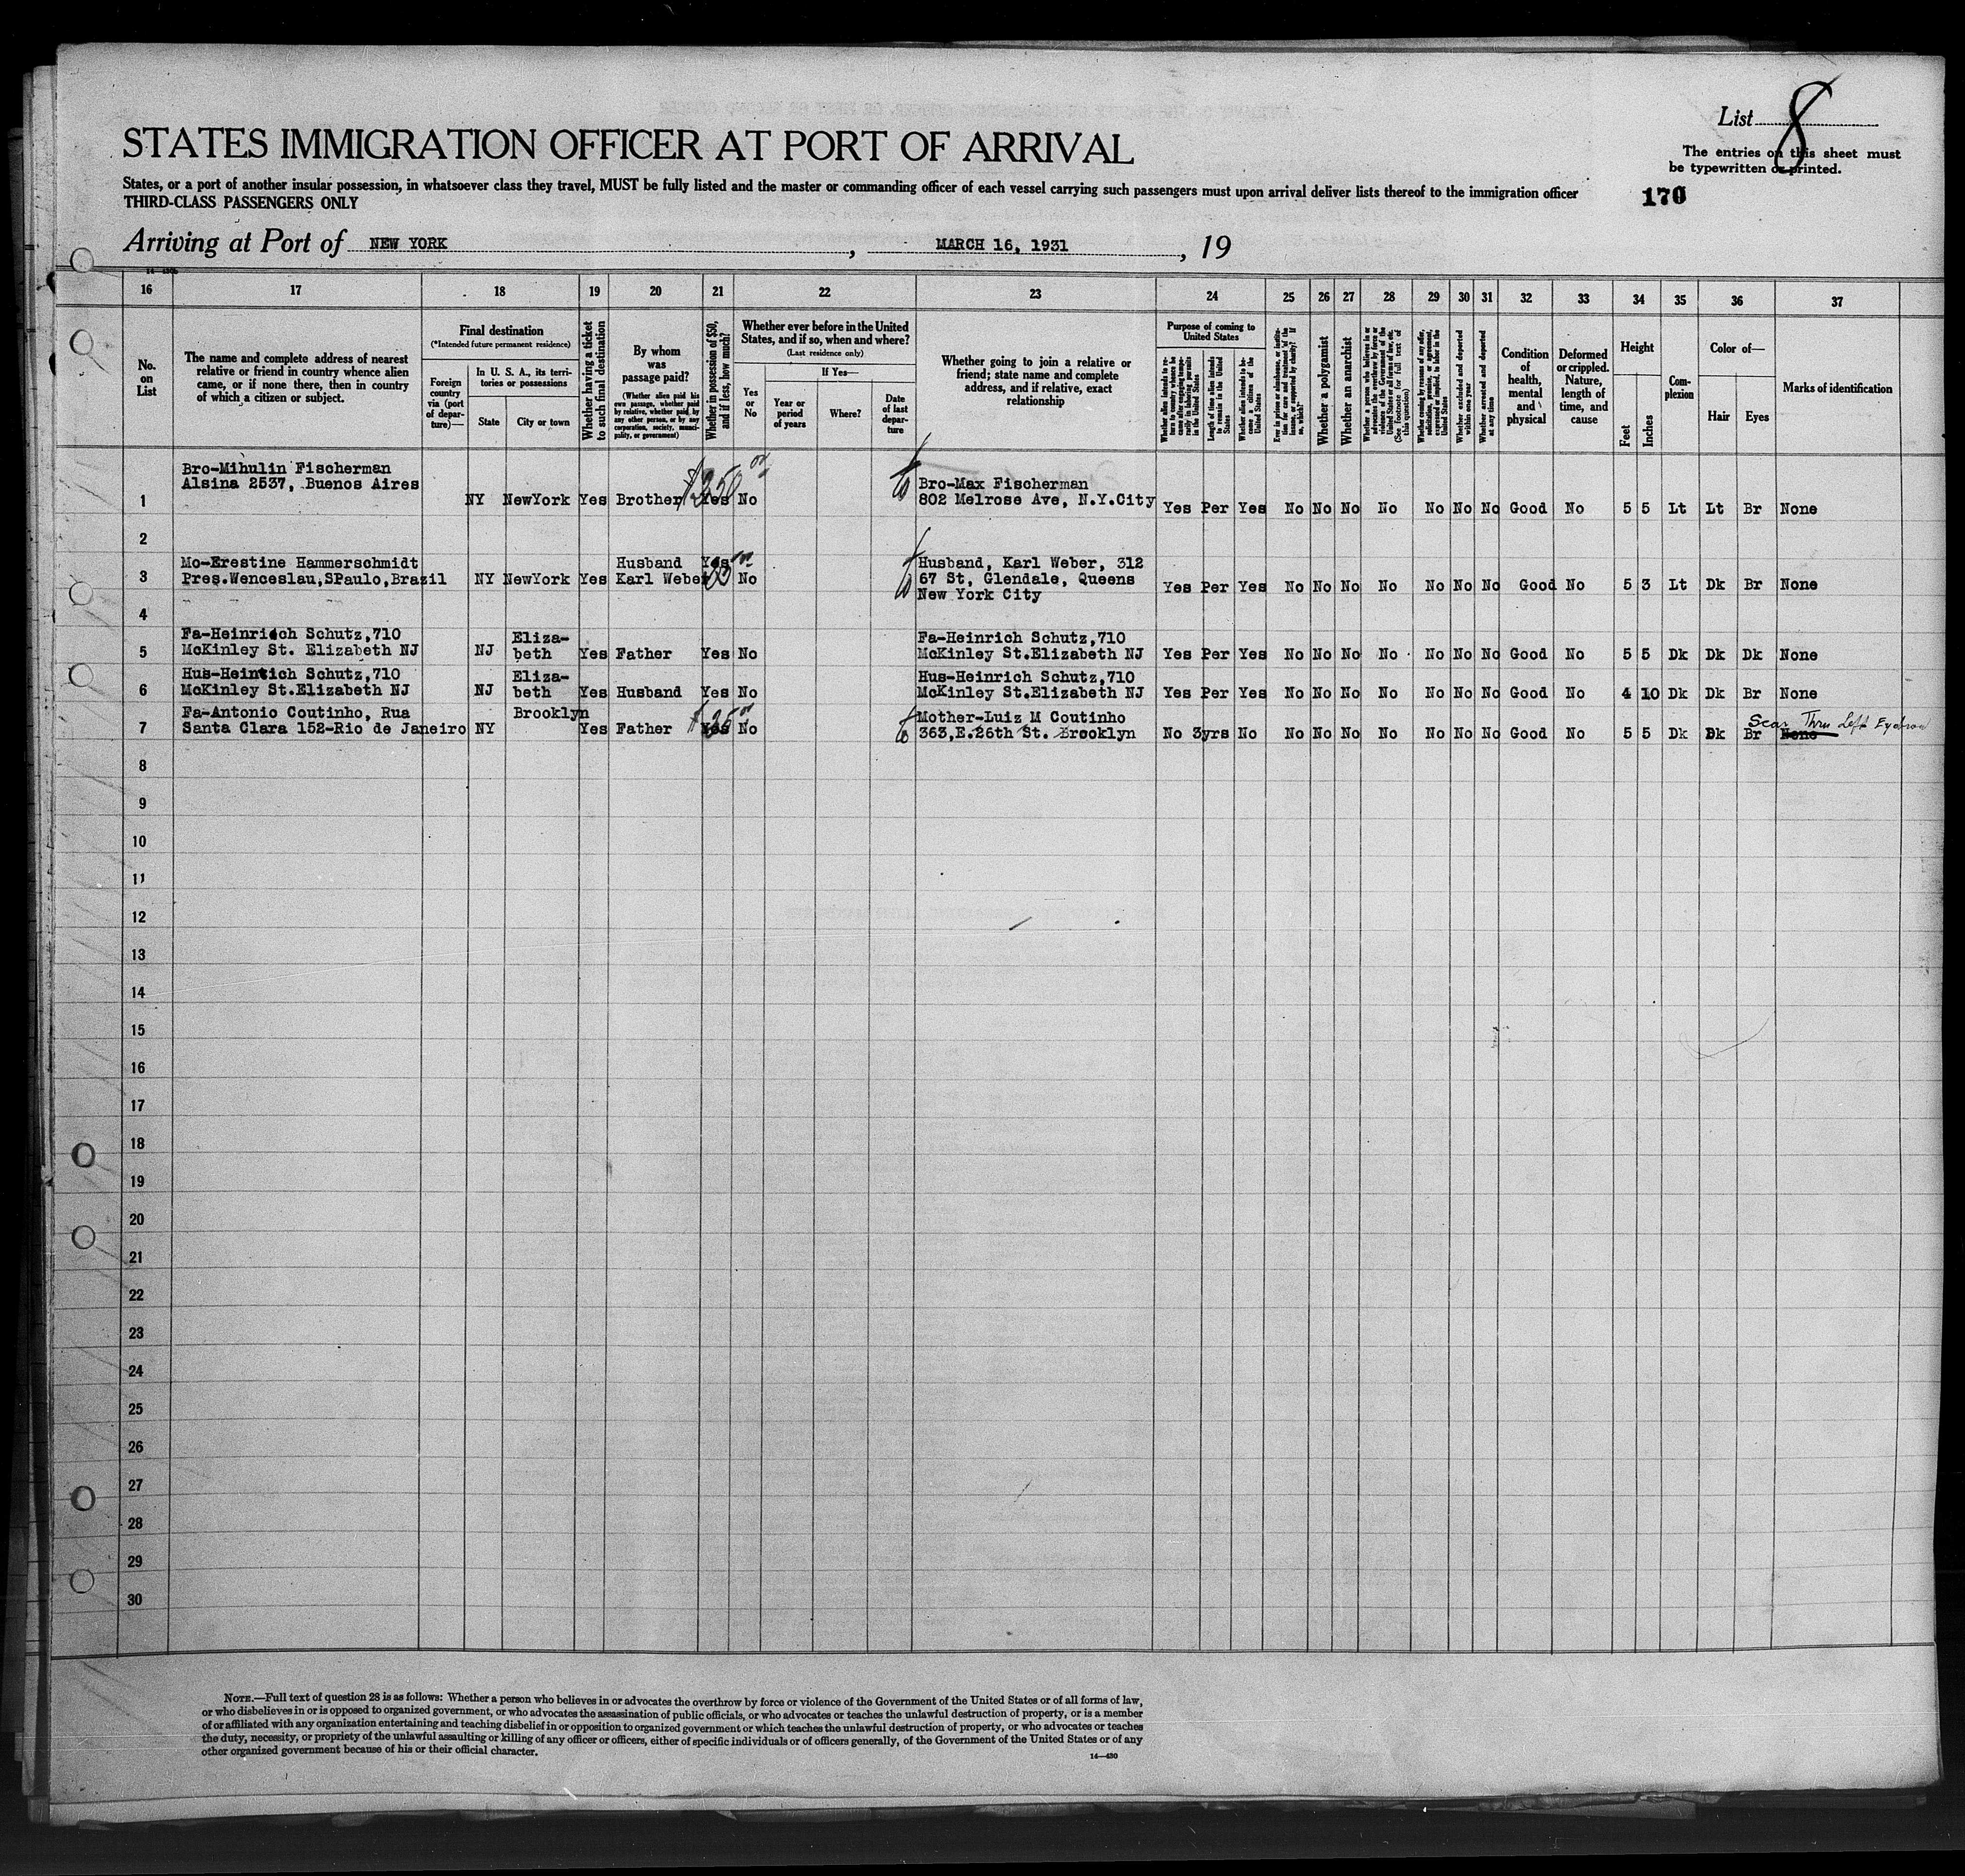 List 8
The entries on this sheet must
be typewritten or printed.
170
STATES IMMIGRATION OFFICER AT PORT OF ARRIVAL
States, or a port of another insular possession, in whatsoever class they travel, MUST be fully listed and the master or commanding officer of each vessel carrying such passengers must upon arrival deliver lists thereof to the immigration officer
THIRD-CLASS PASSENGERS ONLY
Arriving at Port of NEW YORK , MARCH 16, 1931 , 19
16 17 18 19 20 21 22 23 24 25 26 27 28 29 30 31 32 33 34 35 36 37
No. on List
The name and complete address of nearest
relative or friend in country whence alien
came, or if none there, then in country
of which a citizen or subject.
Final destination
(*Intended future permanent residence)
Foreign country via (port of departure)—
In U. S. A., its territories or possessions
State
City or town
Whether having a ticket to such final destination
By whom was passage paid?
(Whether alien paid his own passage, whether paid by relative, whether paid by any other person, or by any corporation, society, municipality, or government)
Whether in possession of $50, and if less, how much?
Whether ever before in the United
States, and if so, when and where?
(Last residence only)
Yes or No
If Yes—
Year or period of years
Where?
Date of last departure
Whether going to join a relative or
friend; state name and complete
address, and if relative, exact
relationship
Purpose of coming to United States
Length of time alien intends to remain in the United States
Whether alien intends to become a citizen of the United States
Whether a polygamist
Whether an anarchist
Whether excluded and deported within one year
Whether arrested and deported at any time
Condition of health, mental and physical
Deformed or crippled. Nature, length of time, and cause
Height
Feet
Inches
Complexion
Color of—
Hair
Eyes
Marks of identification
Bro-Mihulin Fischerman
Alsina 2537, Buenos Aires
Bro-Max Fischerman
1 NY NewYork Yes Brother $250 00 Yes No to 802 Melrose Ave, N.Y.City Yes Per Yes No No No No No No No Good No 5 5 Lt Lt Br None
2
Mo-Erestine Hammerschmidt Husband Yes Husband, Karl Weber, 312
3 Pres.Wenceslau,SPaulo,Brazil NY NewYork Yes Karl Weber No to 67 St, Glendale, Queens Yes Per Yes No No No No No No No Good No 5 3 Lt Dk Br None
New York City
4
Fa-Heinrich Schutz,710 Eliza- Fa-Heinrich Schutz,710
5 McKinley St. Elizabeth NJ NJ beth Yes Father Yes No McKinley St.Elizabeth NJ Yes Per Yes No No No No No No No Good No 5 5 Dk Dk Dk None
Hus-Heintich Schutz,710 Eliza- Hus-Heinrich Schutz,710
6 McKinley St.Elizabeth NJ NJ beth Yes Husband Yes No McKinley St.Elizabeth NJ Yes Per Yes No No No No No No No Good No 4 10 Dk Dk Br None
Fa-Antonio Coutinho, Rua Brooklyn Mother-Luiz M Coutinho Scar Thru Left Eyebrow
7 Santa Clara 152-Rio de Janeiro NY Yes Father Yes No to 363,E.26th St. Brooklyn No 3yrs No No No No No No No No Good No 5 5 Dk Dk Br None
8
9
10
11
12
13
14
15
16
17
18
19
20
21
22
23
24
25
26
27
28
29
30
NOTE.—Full text of question 28 is as follows: Whether a person who believes in or advocates the overthrow by force or violence of the Government of the United States or of all forms of law,
or who disbelieves in or is opposed to organized government, or who advocates the assassination of public officials, or who advocates or teaches the unlawful destruction of property, or is a member
of or affiliated with any organization entertaining and teaching disbelief in or opposition to organized government or which teaches the unlawful destruction of property, or who advocates or teaches
the duty, necessity, or propriety of the unlawful assaulting or killing of any officer or officers, either of specific individuals or of officers generally, of the Government of the United States or of any
other organized government because of his or their official character.
14—430